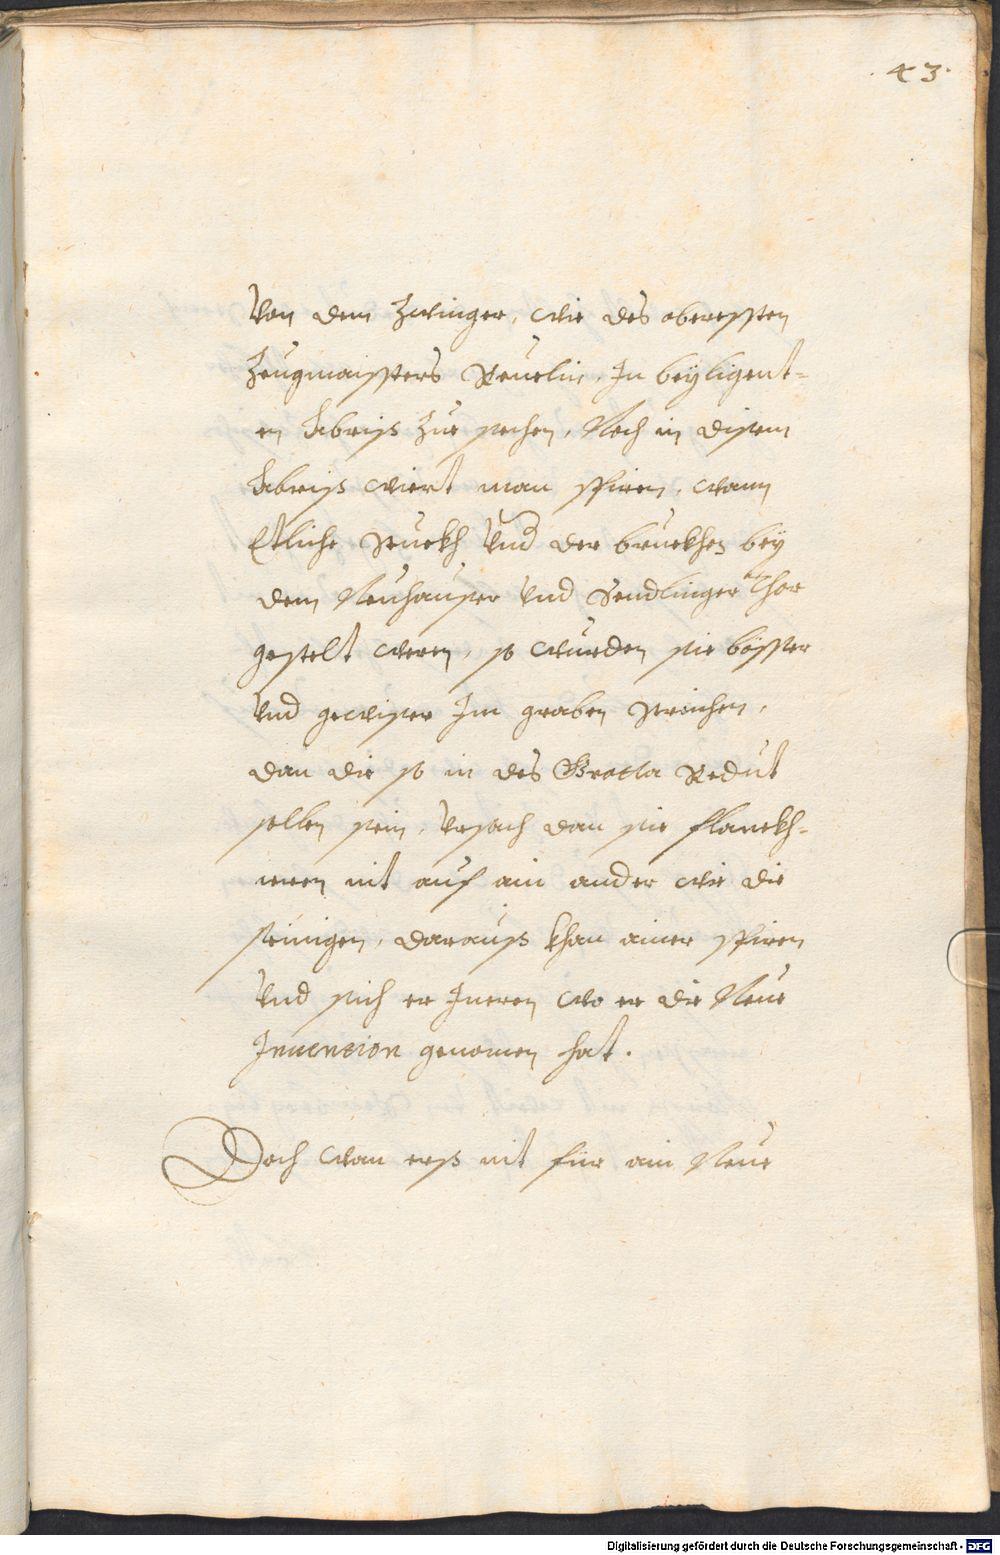 43.
Von dem Zwinger, wie des oberissten
Zeugmaissters Reuelin, In beyligent-
en Abriss zue sechen, Noch in disem
Abriss wiert man spiren, wann
Etliche stuckh Vnd der bruckhen bey
dem Neuhauser Vnd Sendlinger Thor
gestelt weren, so wurden sie bösser
Vnd gewiser Im graben streichen,
dan die so in des Gratta Redut
sollen sein, Vrsach dan sie flanckh-
ieren nit auf ain ander wie die
seinigen, darauss khan ainer spiren
Vnd sich er Ineren wo er die Neue
Inuencion genomen hat.
Doch wan erss nit für ain Neue
Digitalisierung gefördert durch die Deutsche Forschungsgemeinschaft - DFG